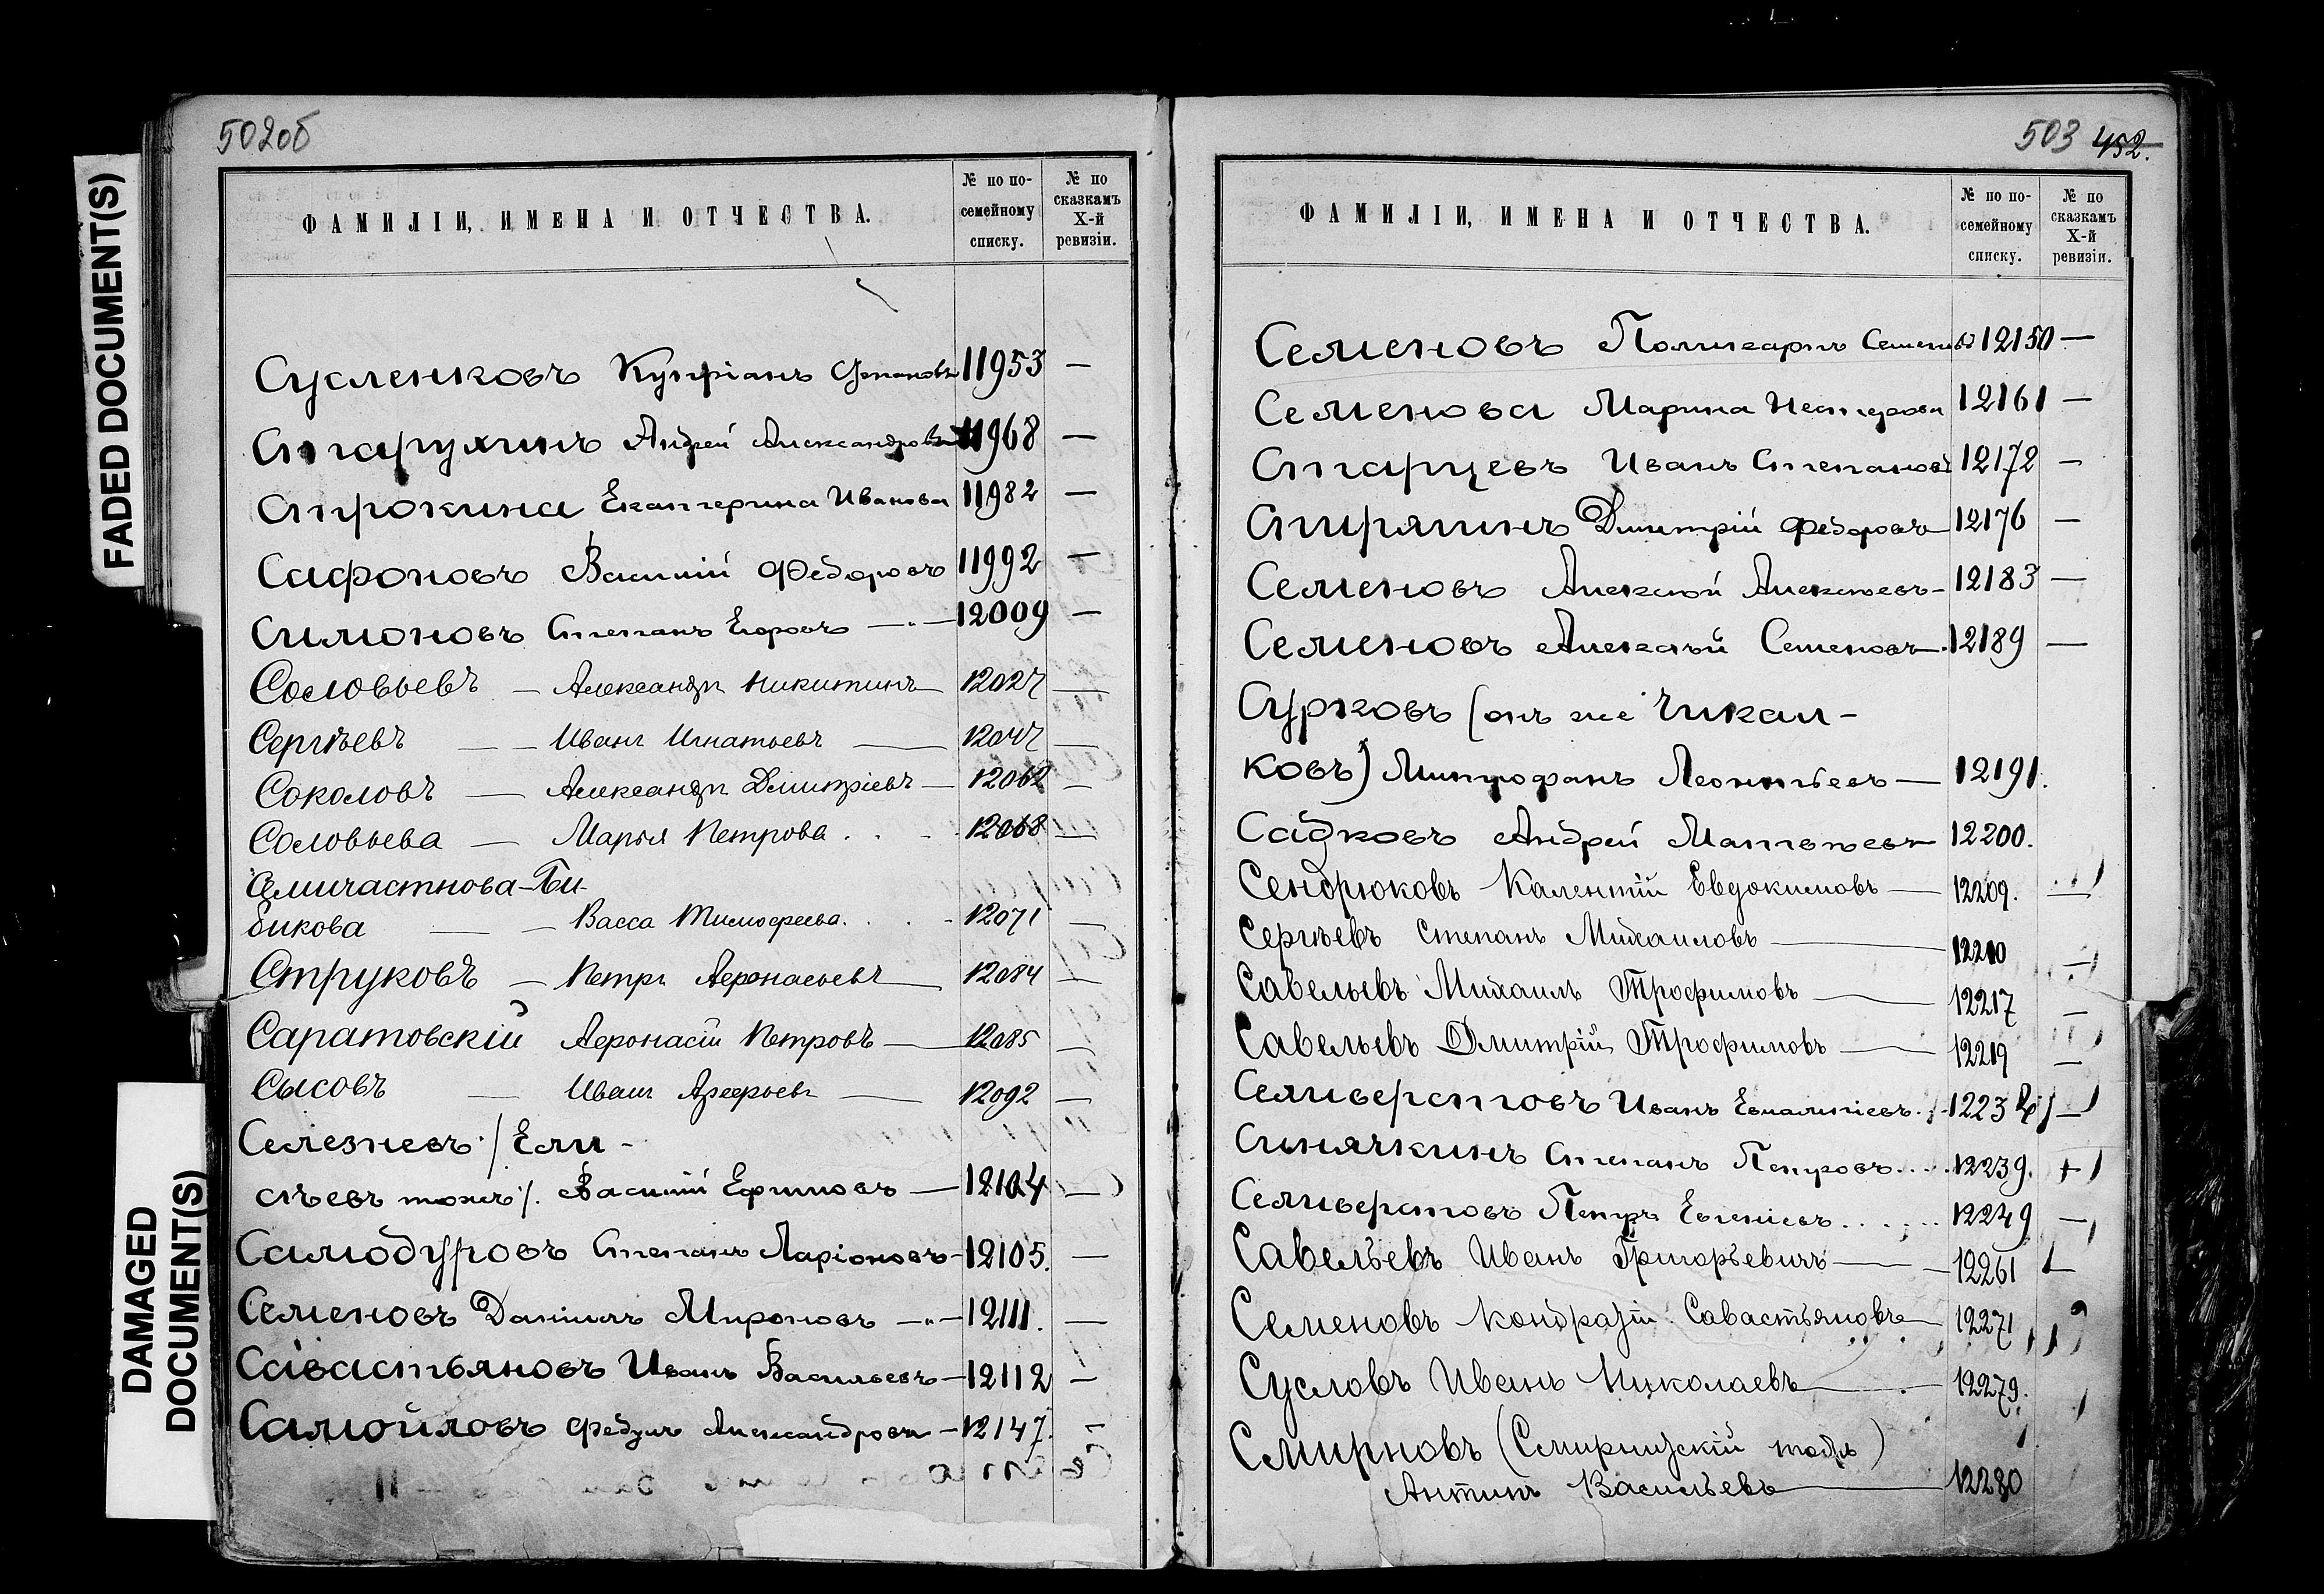 FADED DOCUMENT(S)
DAMAGED
DOCUMENT(S)
502об
ФАМИЛІИ, ИМЕНА И ОТЧЕСТВА.
№ по по-
семейному
списку.
№ по
сказкамъ
X-й
ревизіи.
Сусленковъ Купріанъ 11953 —
Старухинъ Андрей Александровъ 11968 —
Строкина Екатерина Иванова 11982 —
Сафоновъ Василій Федоровъ 11992 —
Симоновъ Степанъ Егоровъ — 12009 —
Соловьевъ — Александръ Никитинъ 12027 —
Сергѣевъ — — Иванъ Игнатьевъ — 12047 —
Соколовъ — Александръ Дмитріевъ — 12062 —
Соловьева — Марья Петрова . . . 12068 —
Семичастнова-Би-
бикова — — Васса Тимофеева . . . 12071 —
Струковъ — Петръ Афонасьевъ 12084 —
Саратовскій Афонасій Петровъ — 12085 —
Сысовъ — Иванъ Арефьевъ — 12092 —
Селезневъ /Ели-
сѣевъ тожъ/. Василій Ефимовъ — 12104 —
Самодуровъ Степанъ Ларіоновъ — 12105. —
Семеновъ Даніилъ Мироновъ — 12111. —
Савастьяновъ Иванъ Васильевъ — 12112 —
Самойловъ Федулъ Александровъ — 12147.
503 452.
ФАМИЛІИ, ИМЕНА И ОТЧЕСТВА.
№ по по-
семейному
списку.
№ по
сказкамъ
X-й
ревизіи.
Семеновъ Поликарпъ Семеновъ 12150 —
Семенова Марина Нестерова 12161 —
Старцевъ Иванъ Степановъ 12172 —
Спирякинъ Дмитрій Федоровъ 12176 —
Семеновъ Алексѣй Алексѣевъ — 12183 —
Семеновъ Алексѣй Семеновъ. 12189 —
Сурковъ (онъ же Чикал-
ковъ) Митрофанъ Леонтьевъ — 12191.
Садковъ Андрей Матвѣевъ 12200.
Сендрюковъ Калентій Евдокимовъ — 12209. —
Сергѣевъ Степанъ Михаиловъ — 12210 —
Савельевъ Михаилъ Трофимовъ — 12217 —
Савельевъ Дмитрій Трофимовъ — 12219 —
Селиверстовъ Иванъ 1223 —
Синячкинъ Степанъ Петровъ . . . . 12239. +
Селиверстовъ Петръ Евгеніевъ . . . . . 12249 —
Савельевъ Иванъ Григорьевичъ — 12261 —
Семеновъ Кондратій Савастьяновъ 12271
Сусловъ Иванъ Николаевъ — 12279.
Смирновъ (Смирницкій тожъ)
Антипъ Васильевъ — 12280